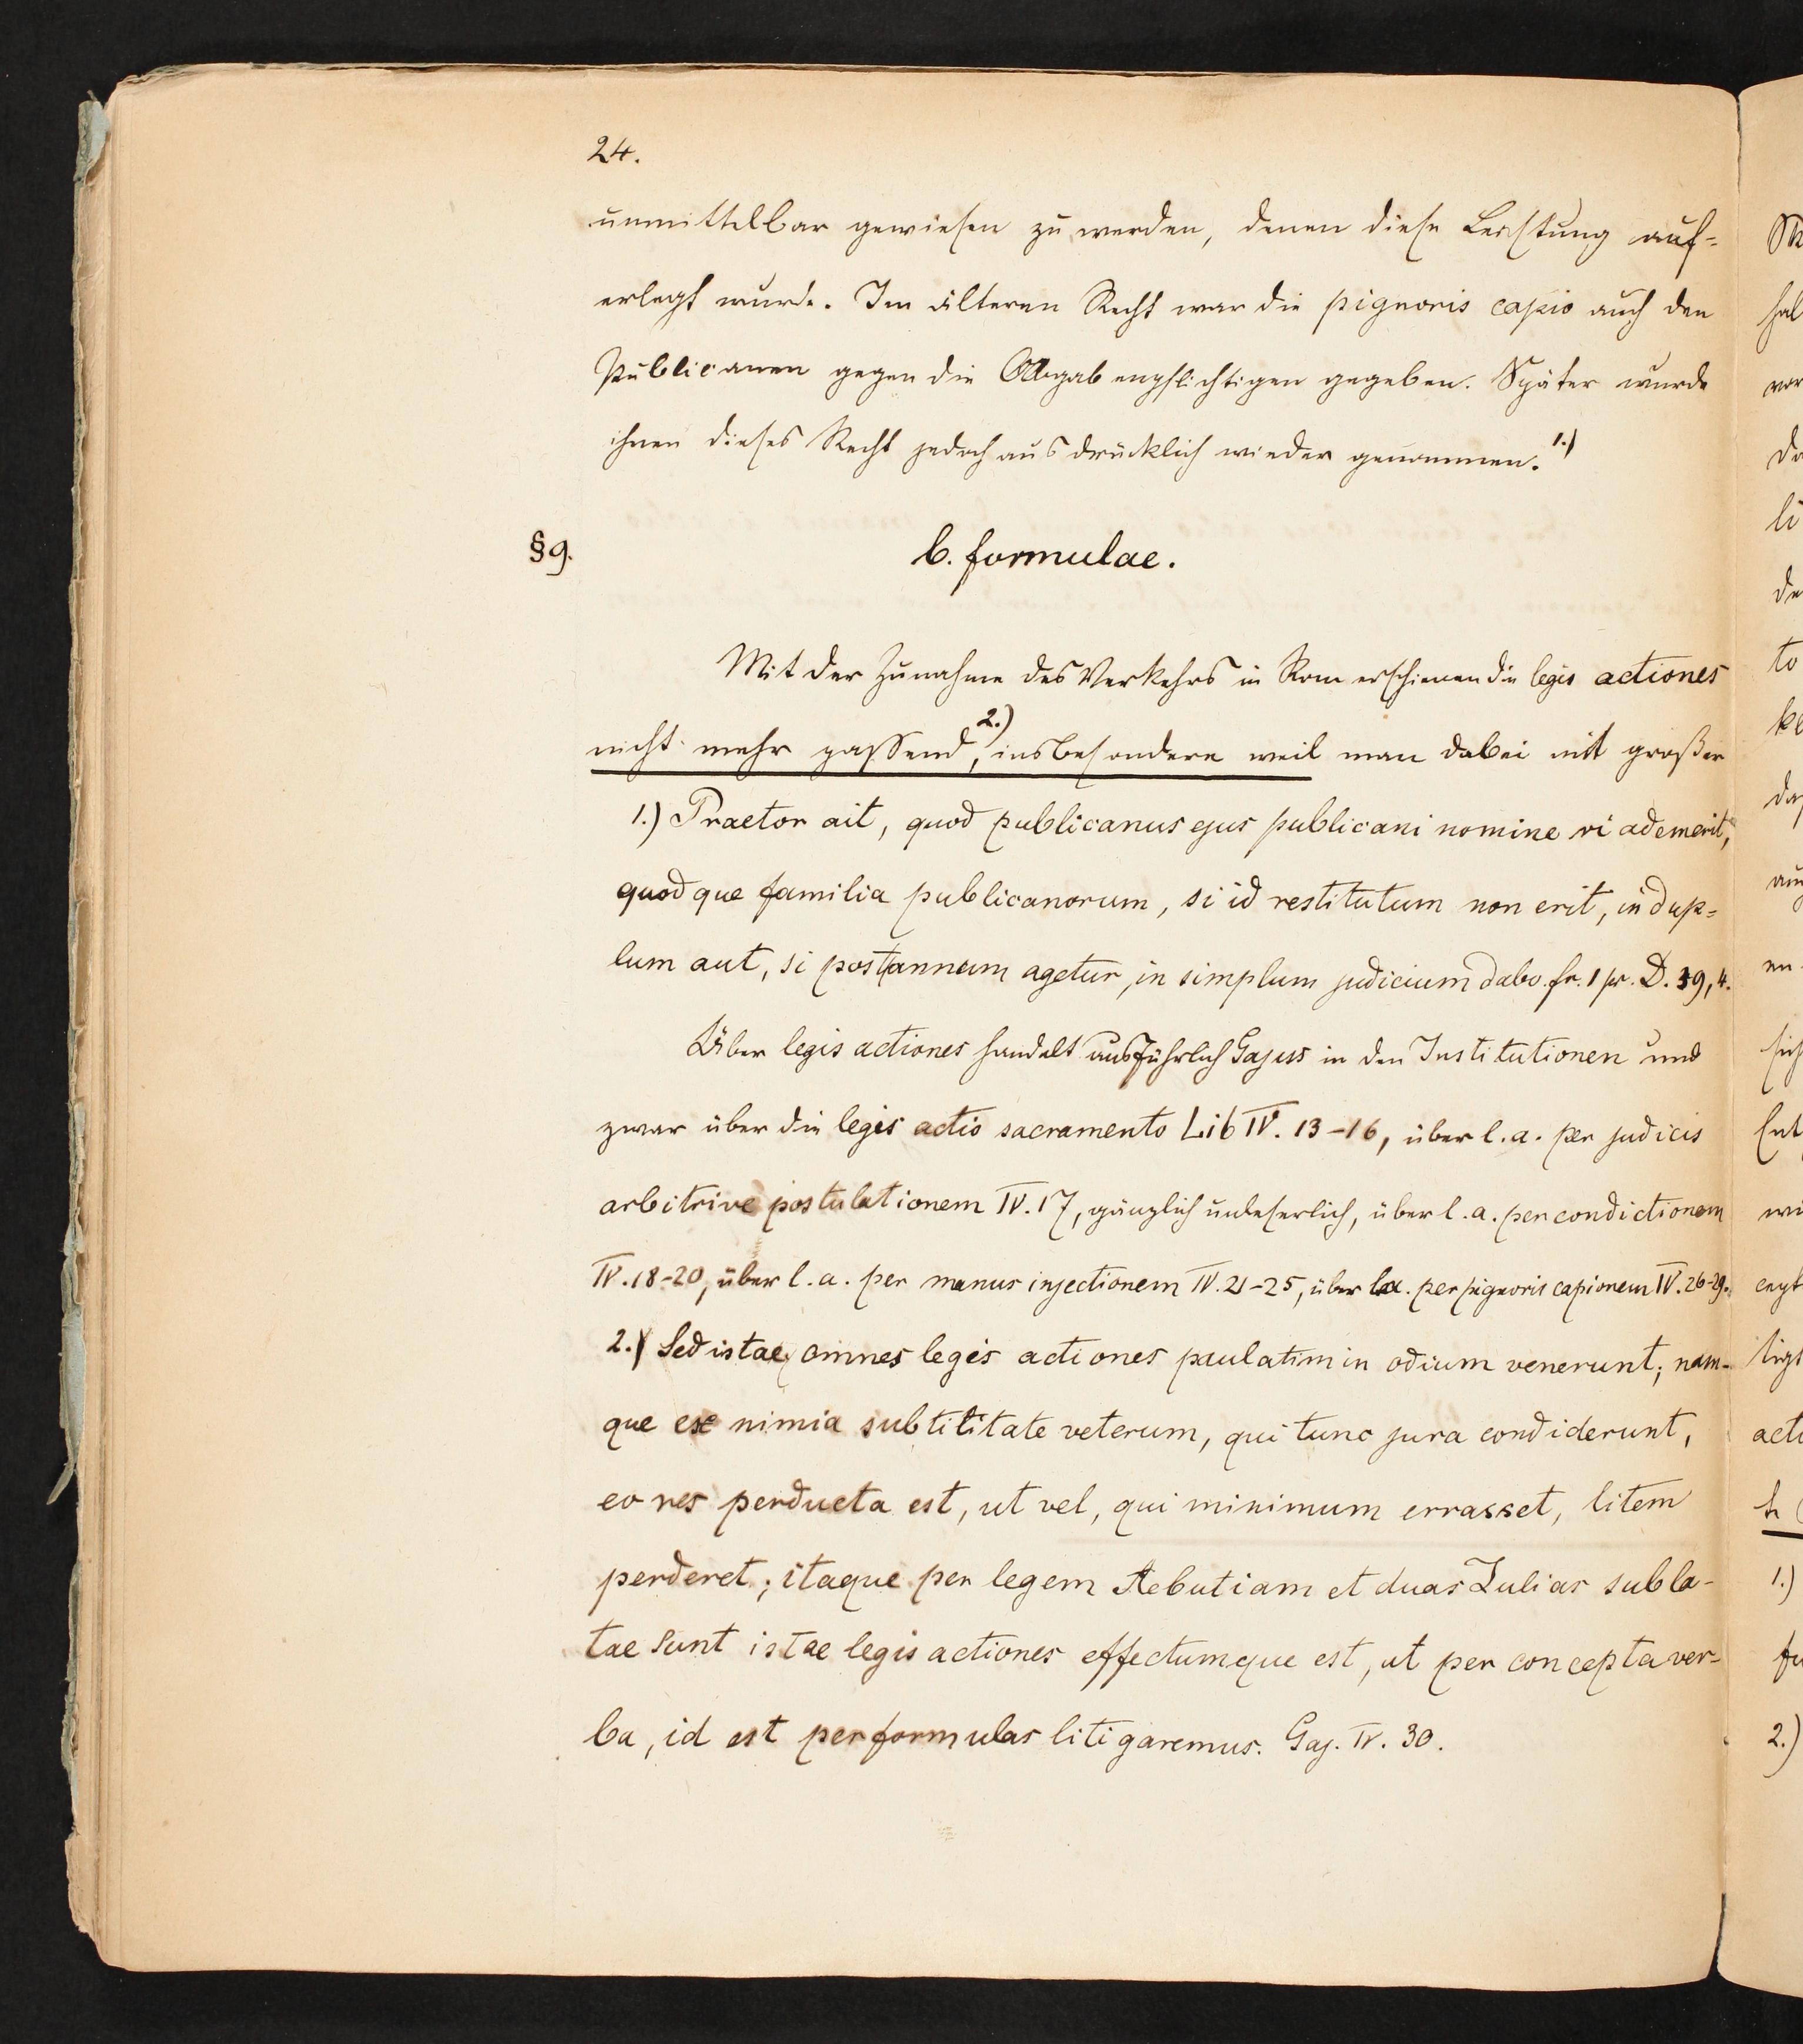 24.
unmittelbar gewiesen zu werden, denen diese Leistung auf-
erlegt wurde. Im älteren Recht war die pignoris capio auch den
Publicanen gegen die Abgabenpflichtigen gegeben. Später wurde
ihnen dieses Recht jedoch ausdrücklich wieder genommen. 1.)
§9. b. formulae.
Mit der Zunahme des Verkehrs in Rom erschienen die legis actiones
nicht mehr passend, 2.) insbesondere weil man dabei mit großer
1.) Praetor ait, quod publicanus ejus publicani nomine vi ademerit,
quodque familia publicanorum, si id restitutum non erit, in dup-
lum aut, si post annum agetur, in simplum judicium dabo. fr. 1 pr. D. 39, 4.
Über legis actiones handelt ausführlich Gajus in den Institutionen und
zwar über die legis actio sacramento Lib IV. 13-16, über l. a. per judicis
arbitrive postulationem IV. 17, gänzlich unleserlich, über l. a. per condictionem
IV. 18-20, über l. a. per manus injectionem IV. 21-25, über l.a. per pignoris capionem IV. 26-29.
2.) Sed istae omnes legis actiones paulatim in odium venerunt; nam-
que ex nimia subtilitate veterum, qui tunc jura condiderunt,
eo res perducta est, ut vel, qui minimum errasset, litem
perderet; itaque per legem Aebutiam et duas Julias subla-
tae sunt istae legis actiones effectumque est, ut per concepta ver-
ba, id est per formulas litigaremus. Gaj. IV. 30.